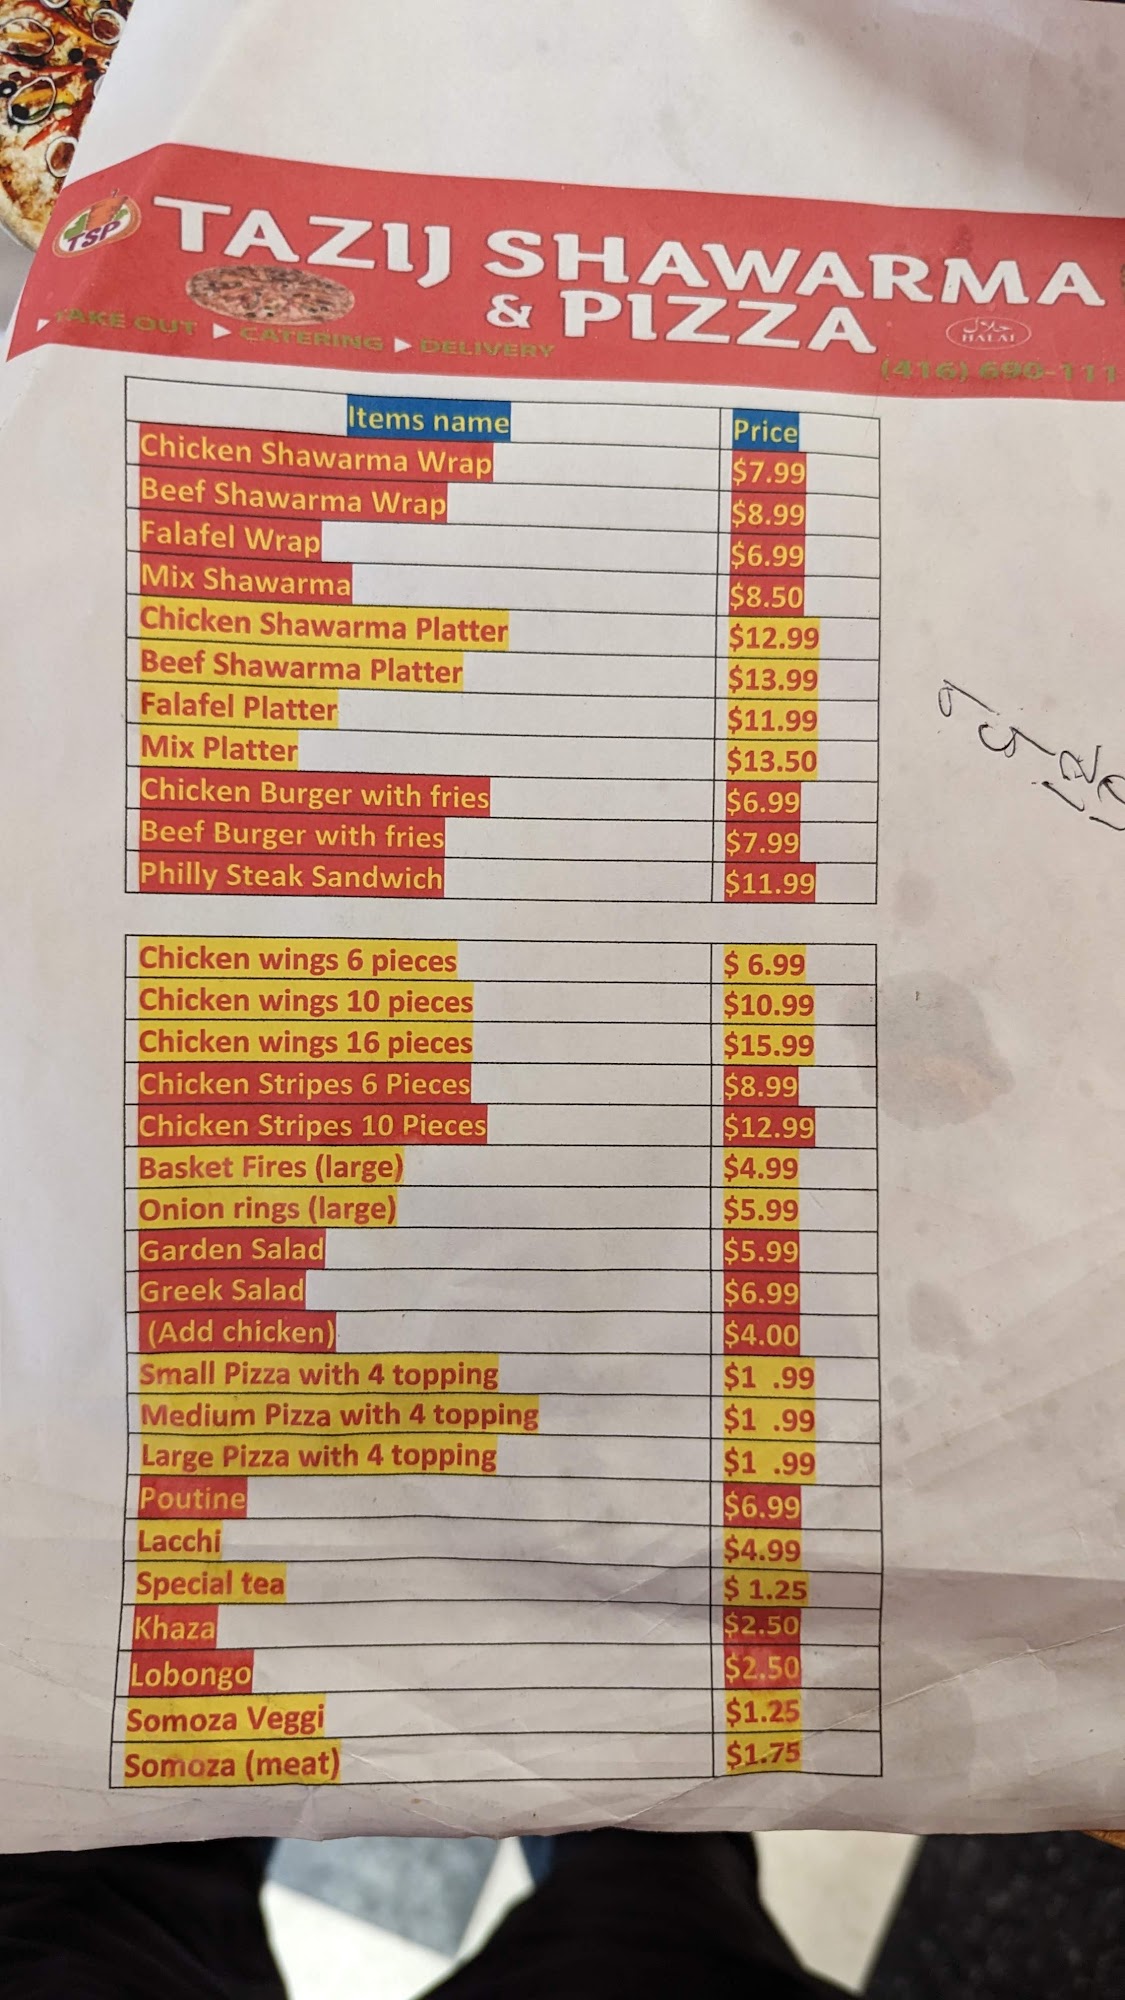 TSP
TAZIJ SHAWARMA
& PIZZA
حلال
HALAL
TAKE OUT ▶ CATERING ▶ DELIVERY
(416) 690-111
Items name Price
Chicken Shawarma Wrap $7.99
Beef Shawarma Wrap $8.99
Falafel Wrap $6.99
Mix Shawarma $8.50
Chicken Shawarma Platter $12.99
Beef Shawarma Platter $13.99
Falafel Platter $11.99
Mix Platter $13.50
Chicken Burger with fries $6.99
Beef Burger with fries $7.99
Philly Steak Sandwich $11.99
Chicken wings 6 pieces $ 6.99
Chicken wings 10 pieces $10.99
Chicken wings 16 pieces $15.99
Chicken Stripes 6 Pieces $8.99
Chicken Stripes 10 Pieces $12.99
Basket Fires (large) $4.99
Onion rings (large) $5.99
Garden Salad $5.99
Greek Salad $6.99
(Add chicken) $4.00
Small Pizza with 4 topping $1 .99
Medium Pizza with 4 topping $1 .99
Large Pizza with 4 topping $1 .99
Poutine $6.99
Lacchi $4.99
Special tea $ 1.25
Khaza $2.50
Lobongo $2.50
Somoza Veggi $1.25
Somoza (meat) $1.75